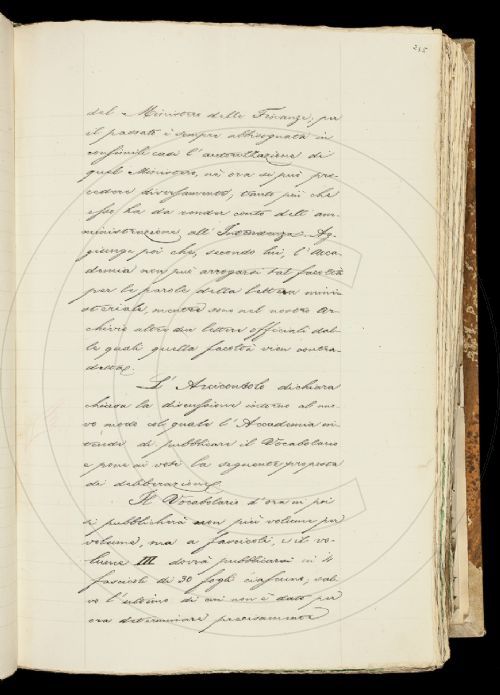 215
del Ministero delle Finanze; per
il passato è sempre abbisognata in
consimili casi l'autorizzazione di
quel Ministero, nè ora si può pro-
cedere diversamente, tanto più che
esso ha da render conto dell'am-
ministrazione all'Intendenza. Ag-
giunge poi che, secondo lui, l'Acca-
demia non può arrogarsi tal facoltà
per le parole della lettera mini-
steriale, mentre sono nel nostro Ar-
chivio altre due lettere officiali dal-
le quali quella facoltà vien contra-
detta.
L'Arciconsolo dichiara
chiusa la discussione intorno al nuo-
vo modo col quale l'Accademia in-
tende di pubblicare il Vocabolario
e pone ai voti la seguente proposta
di deliberazione.
Il Vocabolario d'ora in poi
si pubblicherà non più volume per
volume, ma a fascicoli, e il vo-
lume III dovrà pubblicarsi in 4
fascicoli di 30 fogli ciascuno, sal-
vo l'ultimo di cui non è dato per
ora determinare precisamente